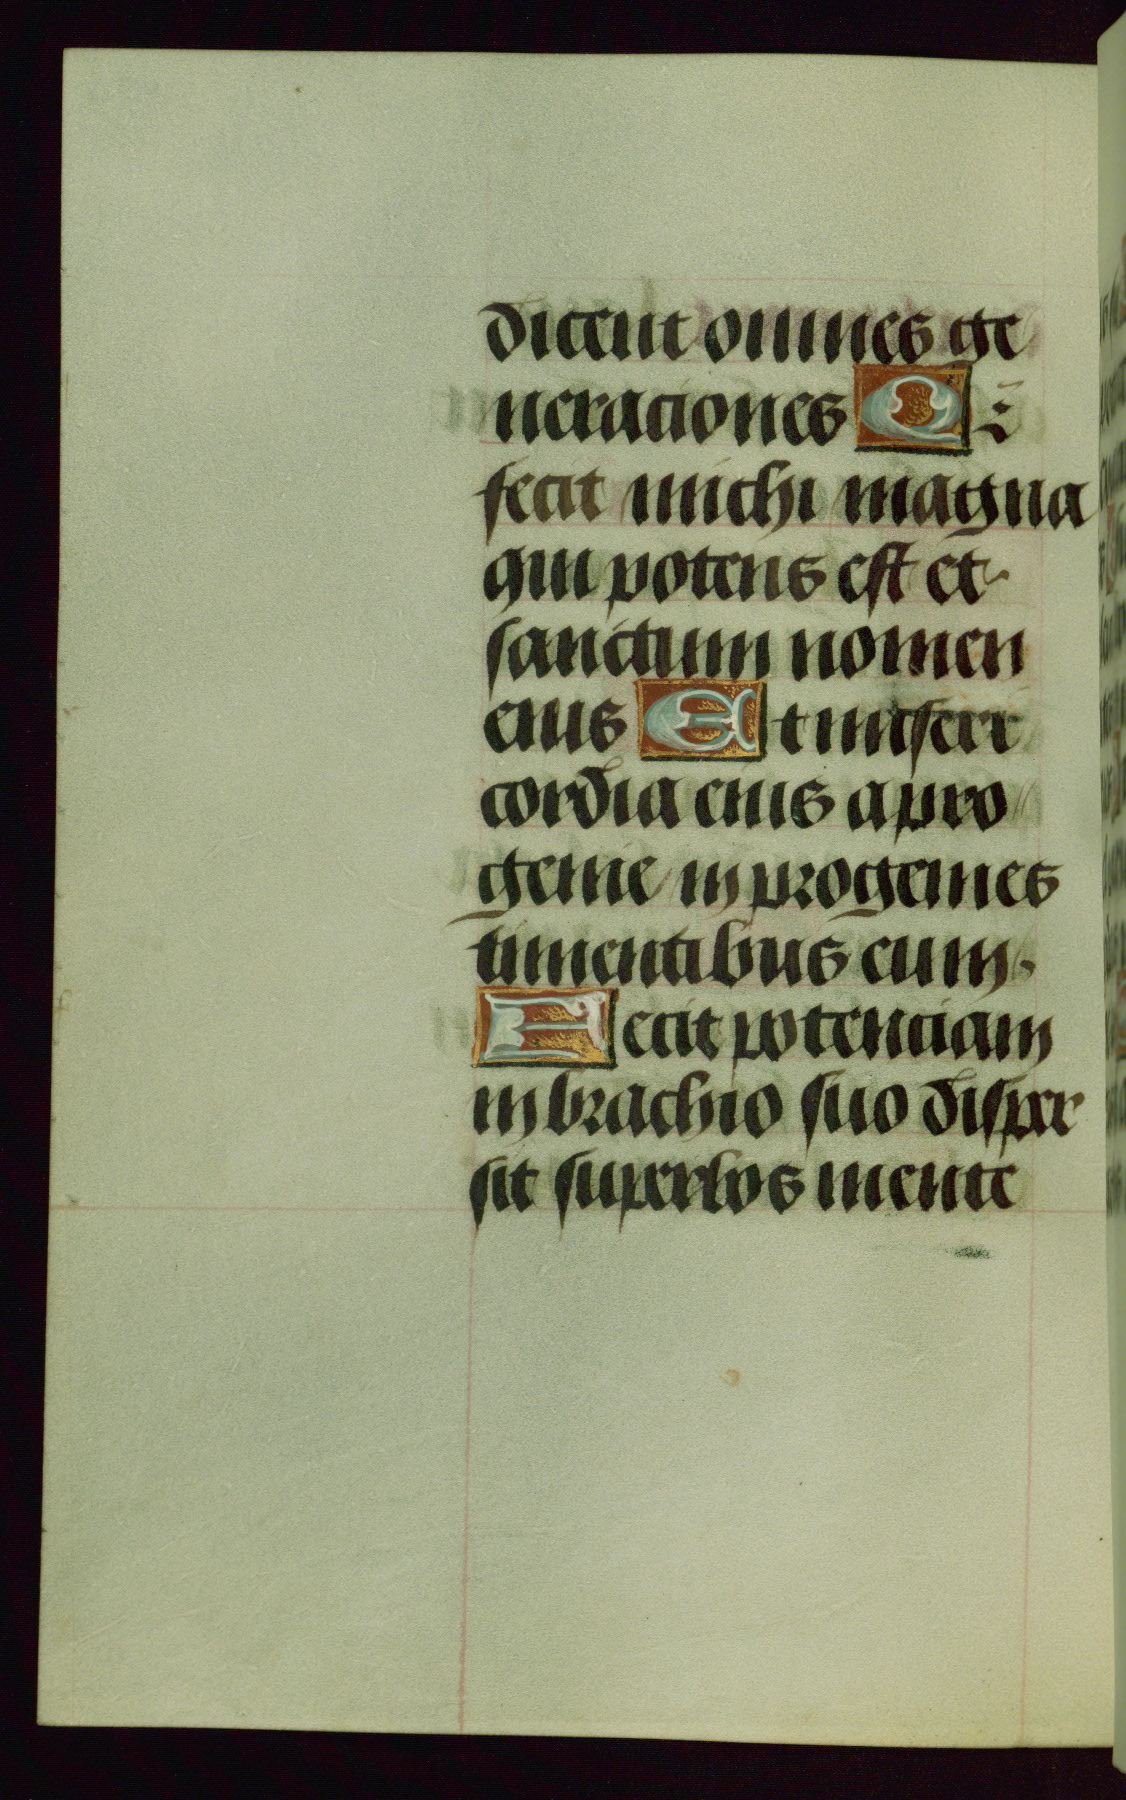 dicent omnes ge
neraciones Qꝛ̄
fecit michi magna
qui potens est et
sanctum nomen
eius Et miseri
cordia eius a pro
genie in progenies
timentibus eum.
Fecit potenciam
in brachio suo disper
sit superbos mente